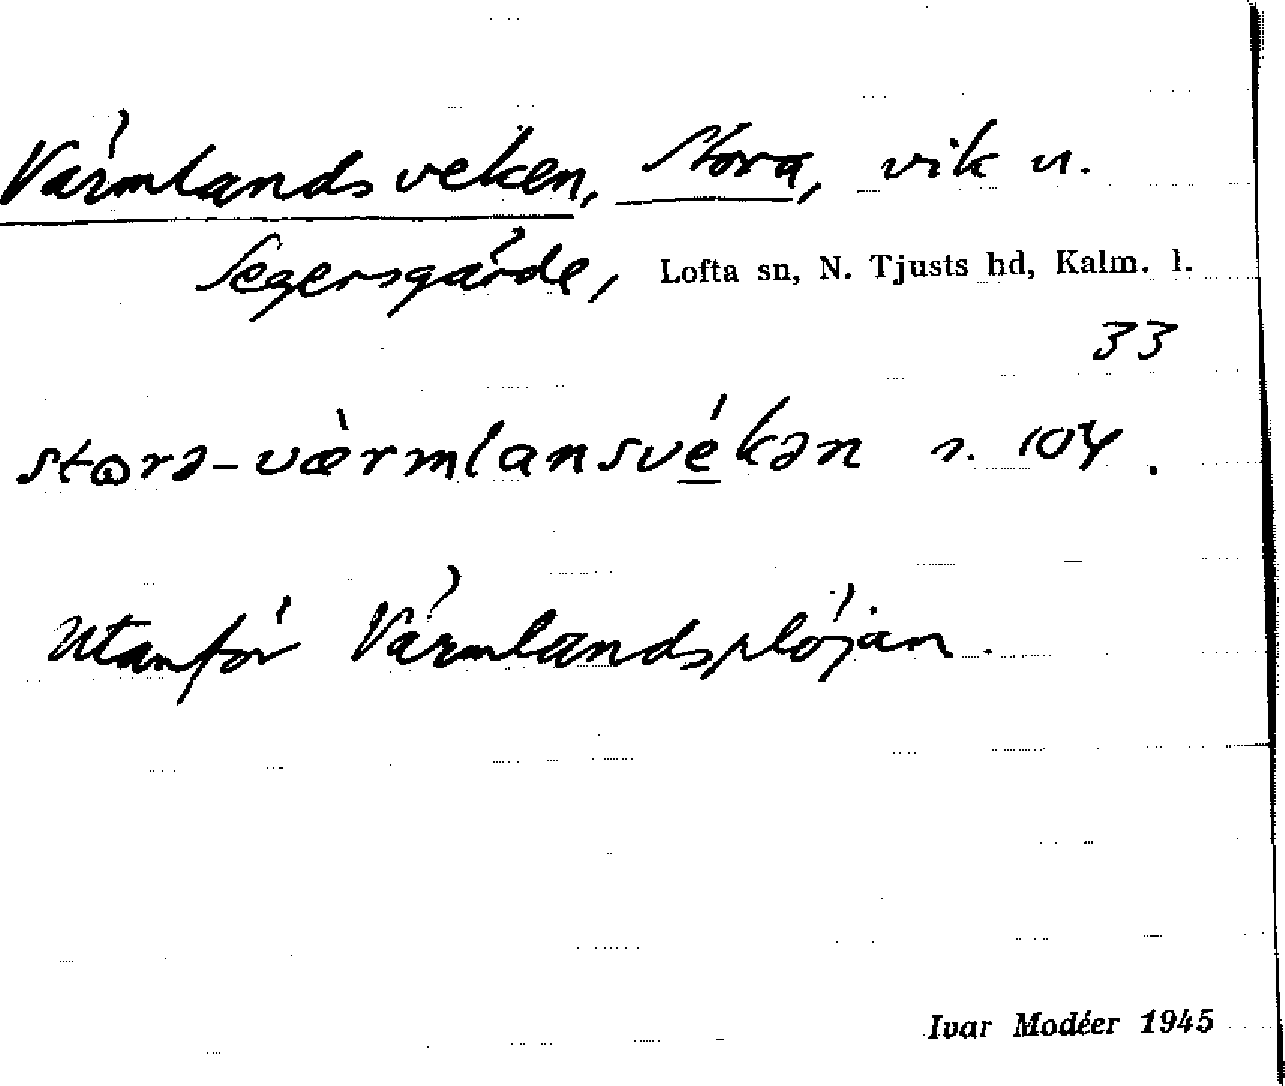 Värmlandsveken, Stora, vik u.
Segersgärde, Lofta sn, N. Tjusts hd, Kalm. l.
33
stɷrə-væ̀rmlansvékən s. 104.
Utanför Värmlandsplöjan.
Ivar Modéer 1945